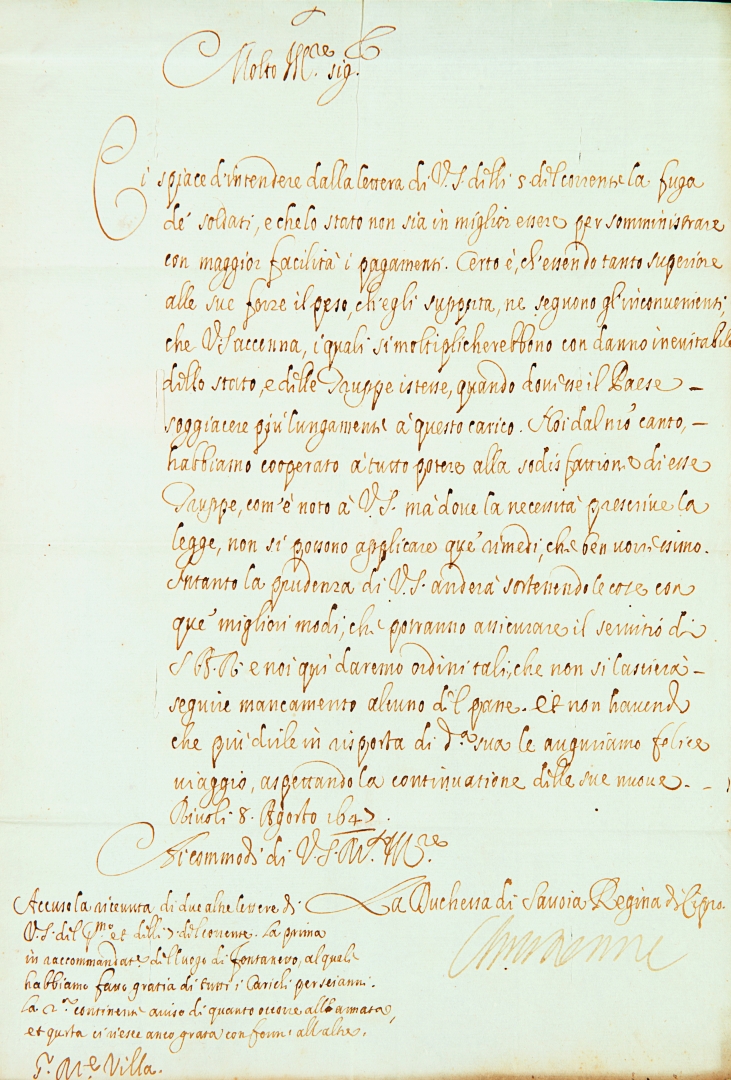 Molto Ill.re Sig.r
Ci spiace d'intendere dalla lettera di V.S. delli 5. del corrente la fuga
de' soldati, e che lo stato non sia in miglior essere per somministrare
con maggior facilità i pagamenti. Certo è, ch'essendo tanto superiore
alle sue forze il peso, ch'egli supporta, ne seguono gl'inconvenienti,
che V.S. accenna, i quali si moltiplicherebbono con danno inevitabile
dello stato, e delle Truppe istesse, quando dovesse il Paese –
soggiacere più lungamente à questo carico. Noi dal n̄ro canto, –
habbiamo cooperato à tutto potere alla sodisfattione di esse
Truppe, com'è noto à V.S. mà dove la necessità prescrive la
legge, non si possono applicare que' rimedi, che ben vorressimo.
Intanto la prudenza di V.S. anderà sostenendo le cose con
que' migliori modi, che potranno assicurare il servitio di
S.A.R. e noi qui daremo ordini tali, che non si lascierà –
seguire mancamento alcuno del pane. Et non havend
che più dirle in risposta di d.a sua le auguriamo felice
viaggio, aspettando la continuatione delle sue nuove. –
Rivoli 8. Agosto 1647
Ai commodi di V.S. M.to Ill.re
La Duchessa di Savoia Regina di Cipro.
Chrestienne
Accuso la ricevuta di due altre lettere di
V.S. del p.mo et delli 7 del corrente. La prima
in raccommandat.e del luogo di Fontaneto, al quale
habbiamo fatto gratia di tutti i Carichi per sei anni.
La 2.a continente aviso di quanto occorre all'armata,
et questa ci riesce anco grata conforme all'altre.
S.r M.se Villa.